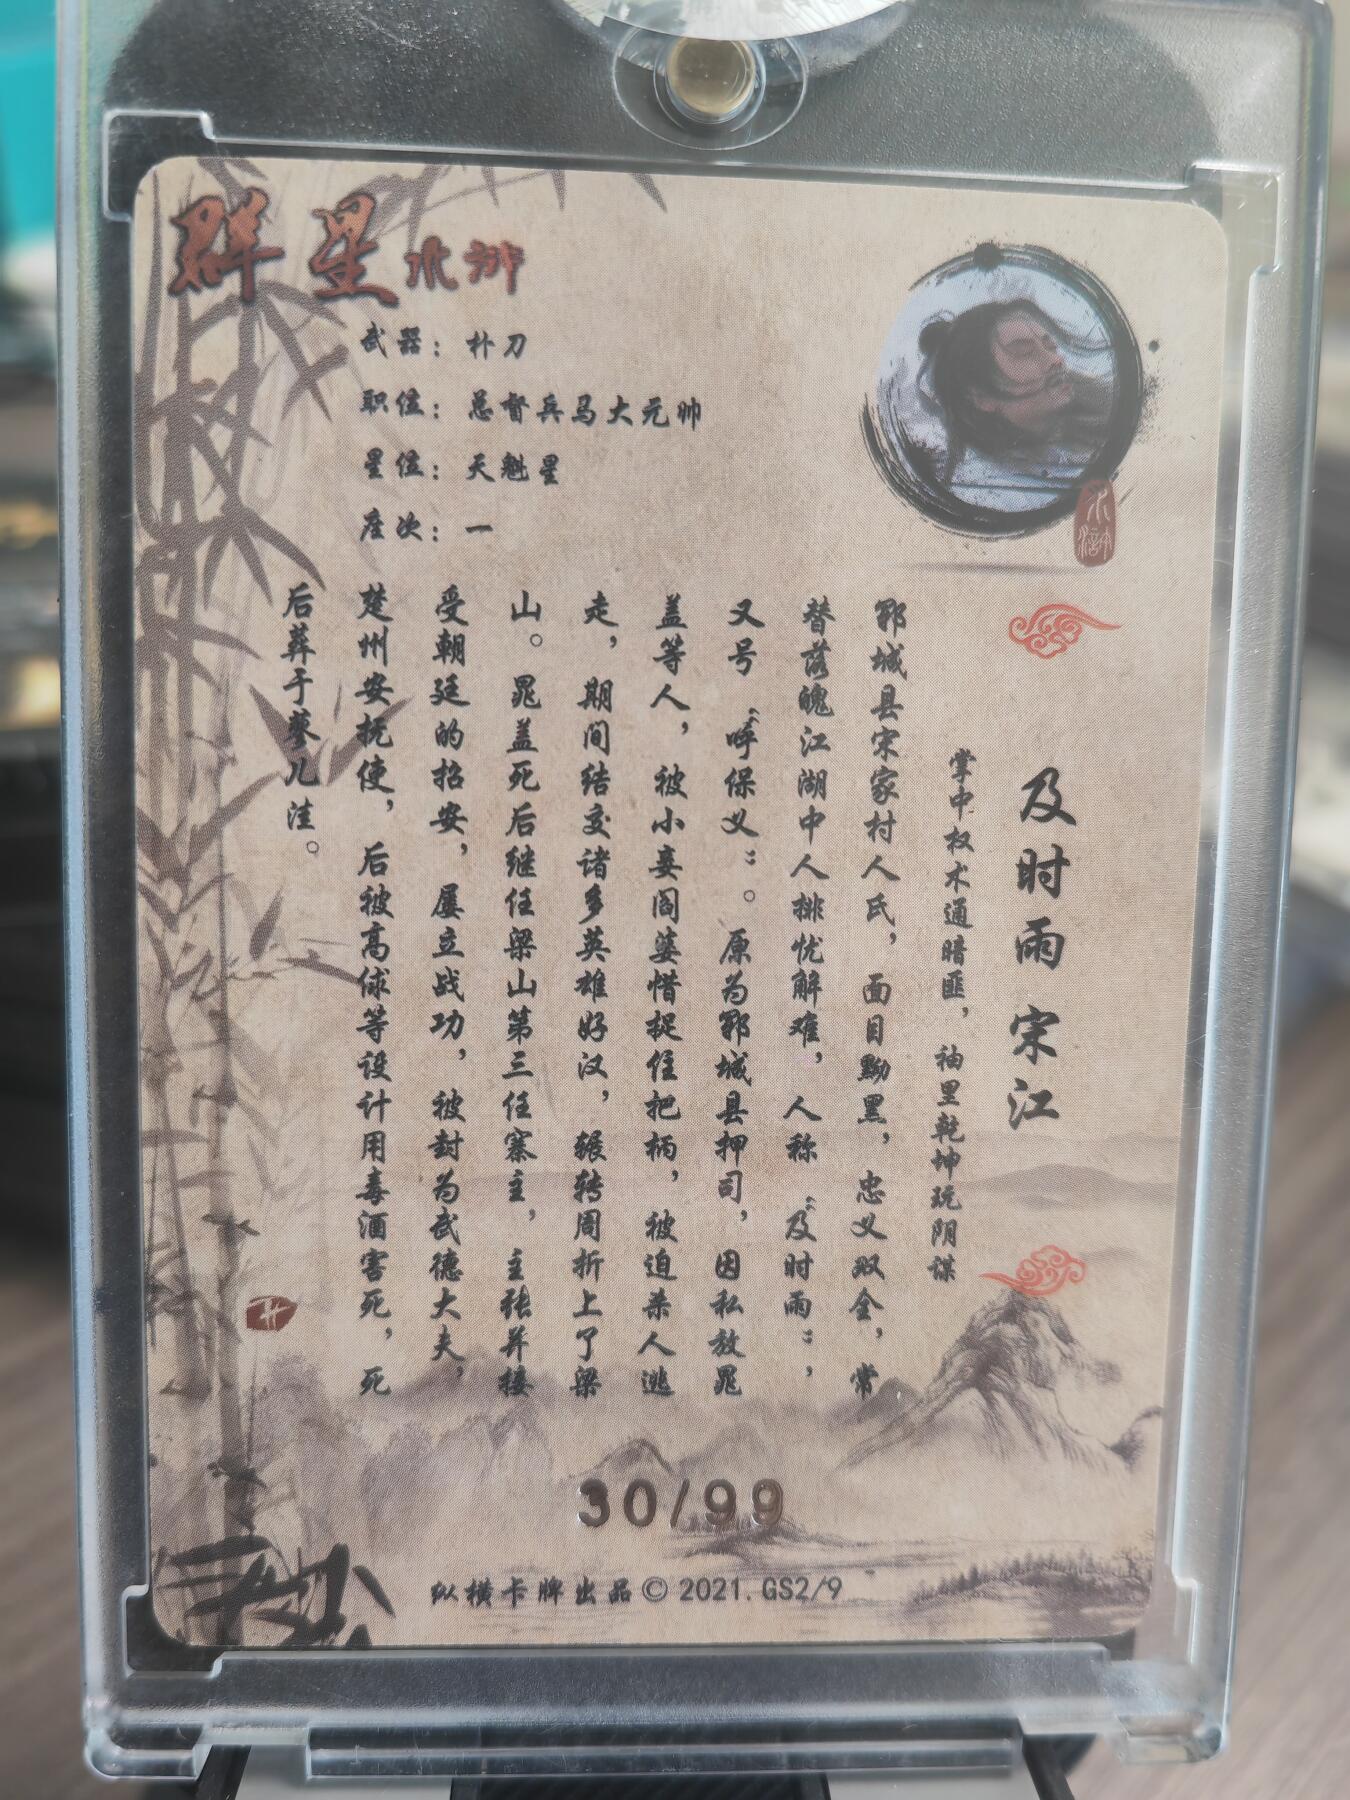 群星水浒
武器：朴刀
职位：总督兵马大元帅
星位：天魁星
座次：一
水浒
及时雨 宋江
掌中权术通暗匪，袖里乾坤玩阴谋
郓城县宋家村人氏，面目黝黑，忠义双全，常
替落魄江湖中人排忧解难，人称“及时雨”，
又号“呼保义”。原为郓城县押司，因私放晁
盖等人，被小妾阎婆惜捉住把柄，被迫杀人逃
走，期间结交诸多英雄好汉，辗转周折上了梁
山。晁盖死后继任梁山第三任寨主，主张并接
受朝廷的招安，屡立战功，被封为武德大夫，
楚州安抚使，后被高俅等设计用毒酒害死，死
后葬于蓼儿洼。
30/99
纵横卡牌出品©2021.GS2/9